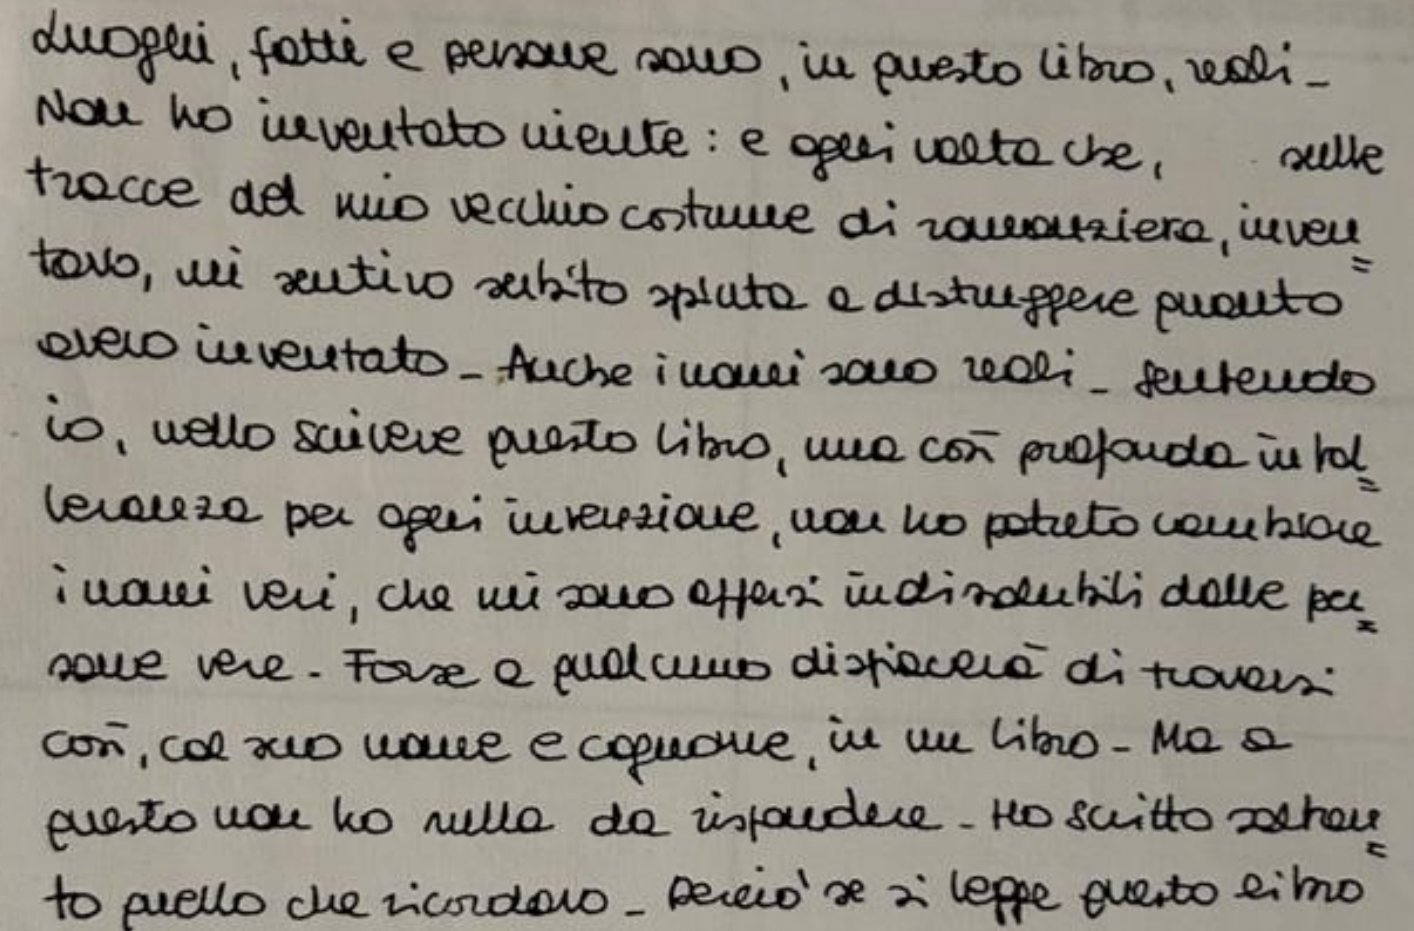 Luoghi, fatti e persone sono, in questo libro, reali_
Non ho inventato niente: e ogni volta che, sulle
tracce del mio vecchio costume di romanziera, inven=
tavo, mi sentivo subito spinta a distruggere quanto
avevo inventato_ Anche i nomi sono reali_ Sentendo
io, nello scrivere questo libro, una così profonda intol=
leranza per ogni invenzione, non ho potuto cambiare
i nomi veri, che mi sono apparsi indissolubili dalle per=
sone vere_ Forse a qualcuno dispiacerà di trovarsi
così, col suo nome e cognome, in un libro_ Ma a
questo non ho nulla da rispondere_ Ho scritto soltan=
to quello che ricordavo_ Perciò se si legge questo libro